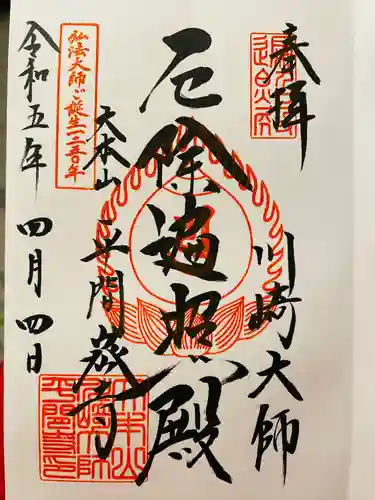 奉拝
川崎大師
厄除遍照殿
大本山
平間寺
弘法大師ご誕生一二五〇年
令和五年
四月四日